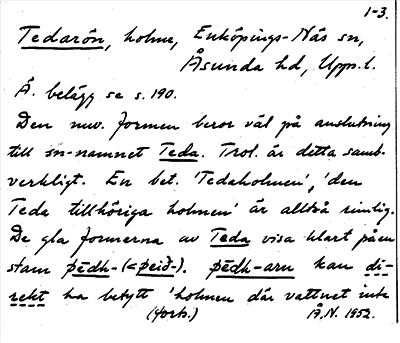 1-3.
Tedarön, holme, Enköpings-Näs sn,
Åsunda hd, Upps. l.
Ä. belägg se s. 190.
Den nuv. formen beror väl på anslutning
till sn-namnet Teda. Trol. är detta samb.
verkligt. En bet. 'Tedaholmen', 'den
Teda tillhöriga holmen' är alltså rimlig.
De gla formerna av Teda visa klart på en
stam pēdh- (< peið-). pēdh-arn kan di-
rekt ha betytt 'holmen där vattnet inte
(forts.) Å.N. 1952.